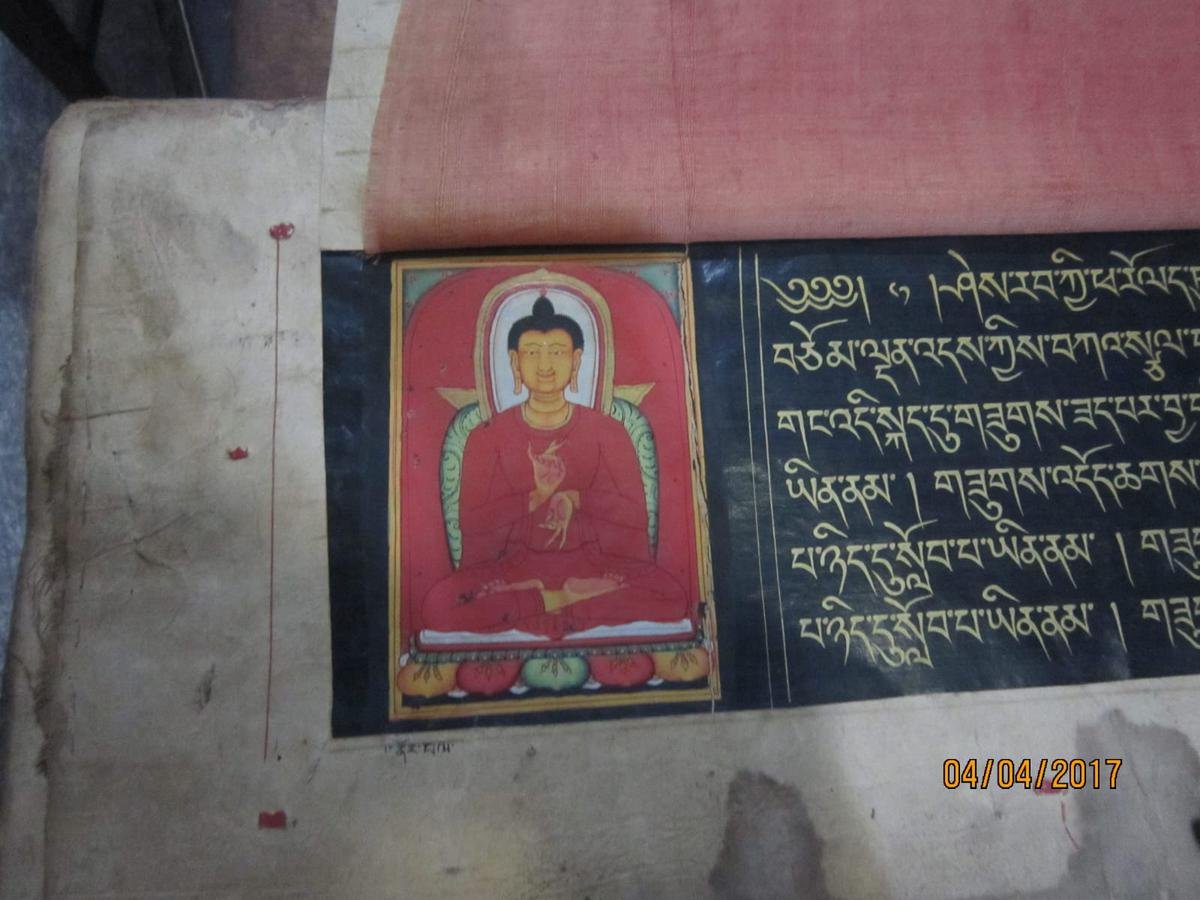 ༄༅༅། ༡ །ཤེས་རབ་ཀྱི་ཕ་རོལ་དུ
བཅོམ་ལྡན་འདས་ཀྱིས་བཀའ་སྩལ་པ
གང་འདི་སྐད་དུ་གཟུགས་ཟད་པར་བྱ
ཡིན་ནམ། གཟུགས་འདོད་ཆགས
པ་ཉིད་དུ་སློབ་པ་ཡིན་ནམ། གཟུ
པ་ཉིད་དུ་སློབ་པ་ཡིན་ནམ། གཟུ
04/04/2017